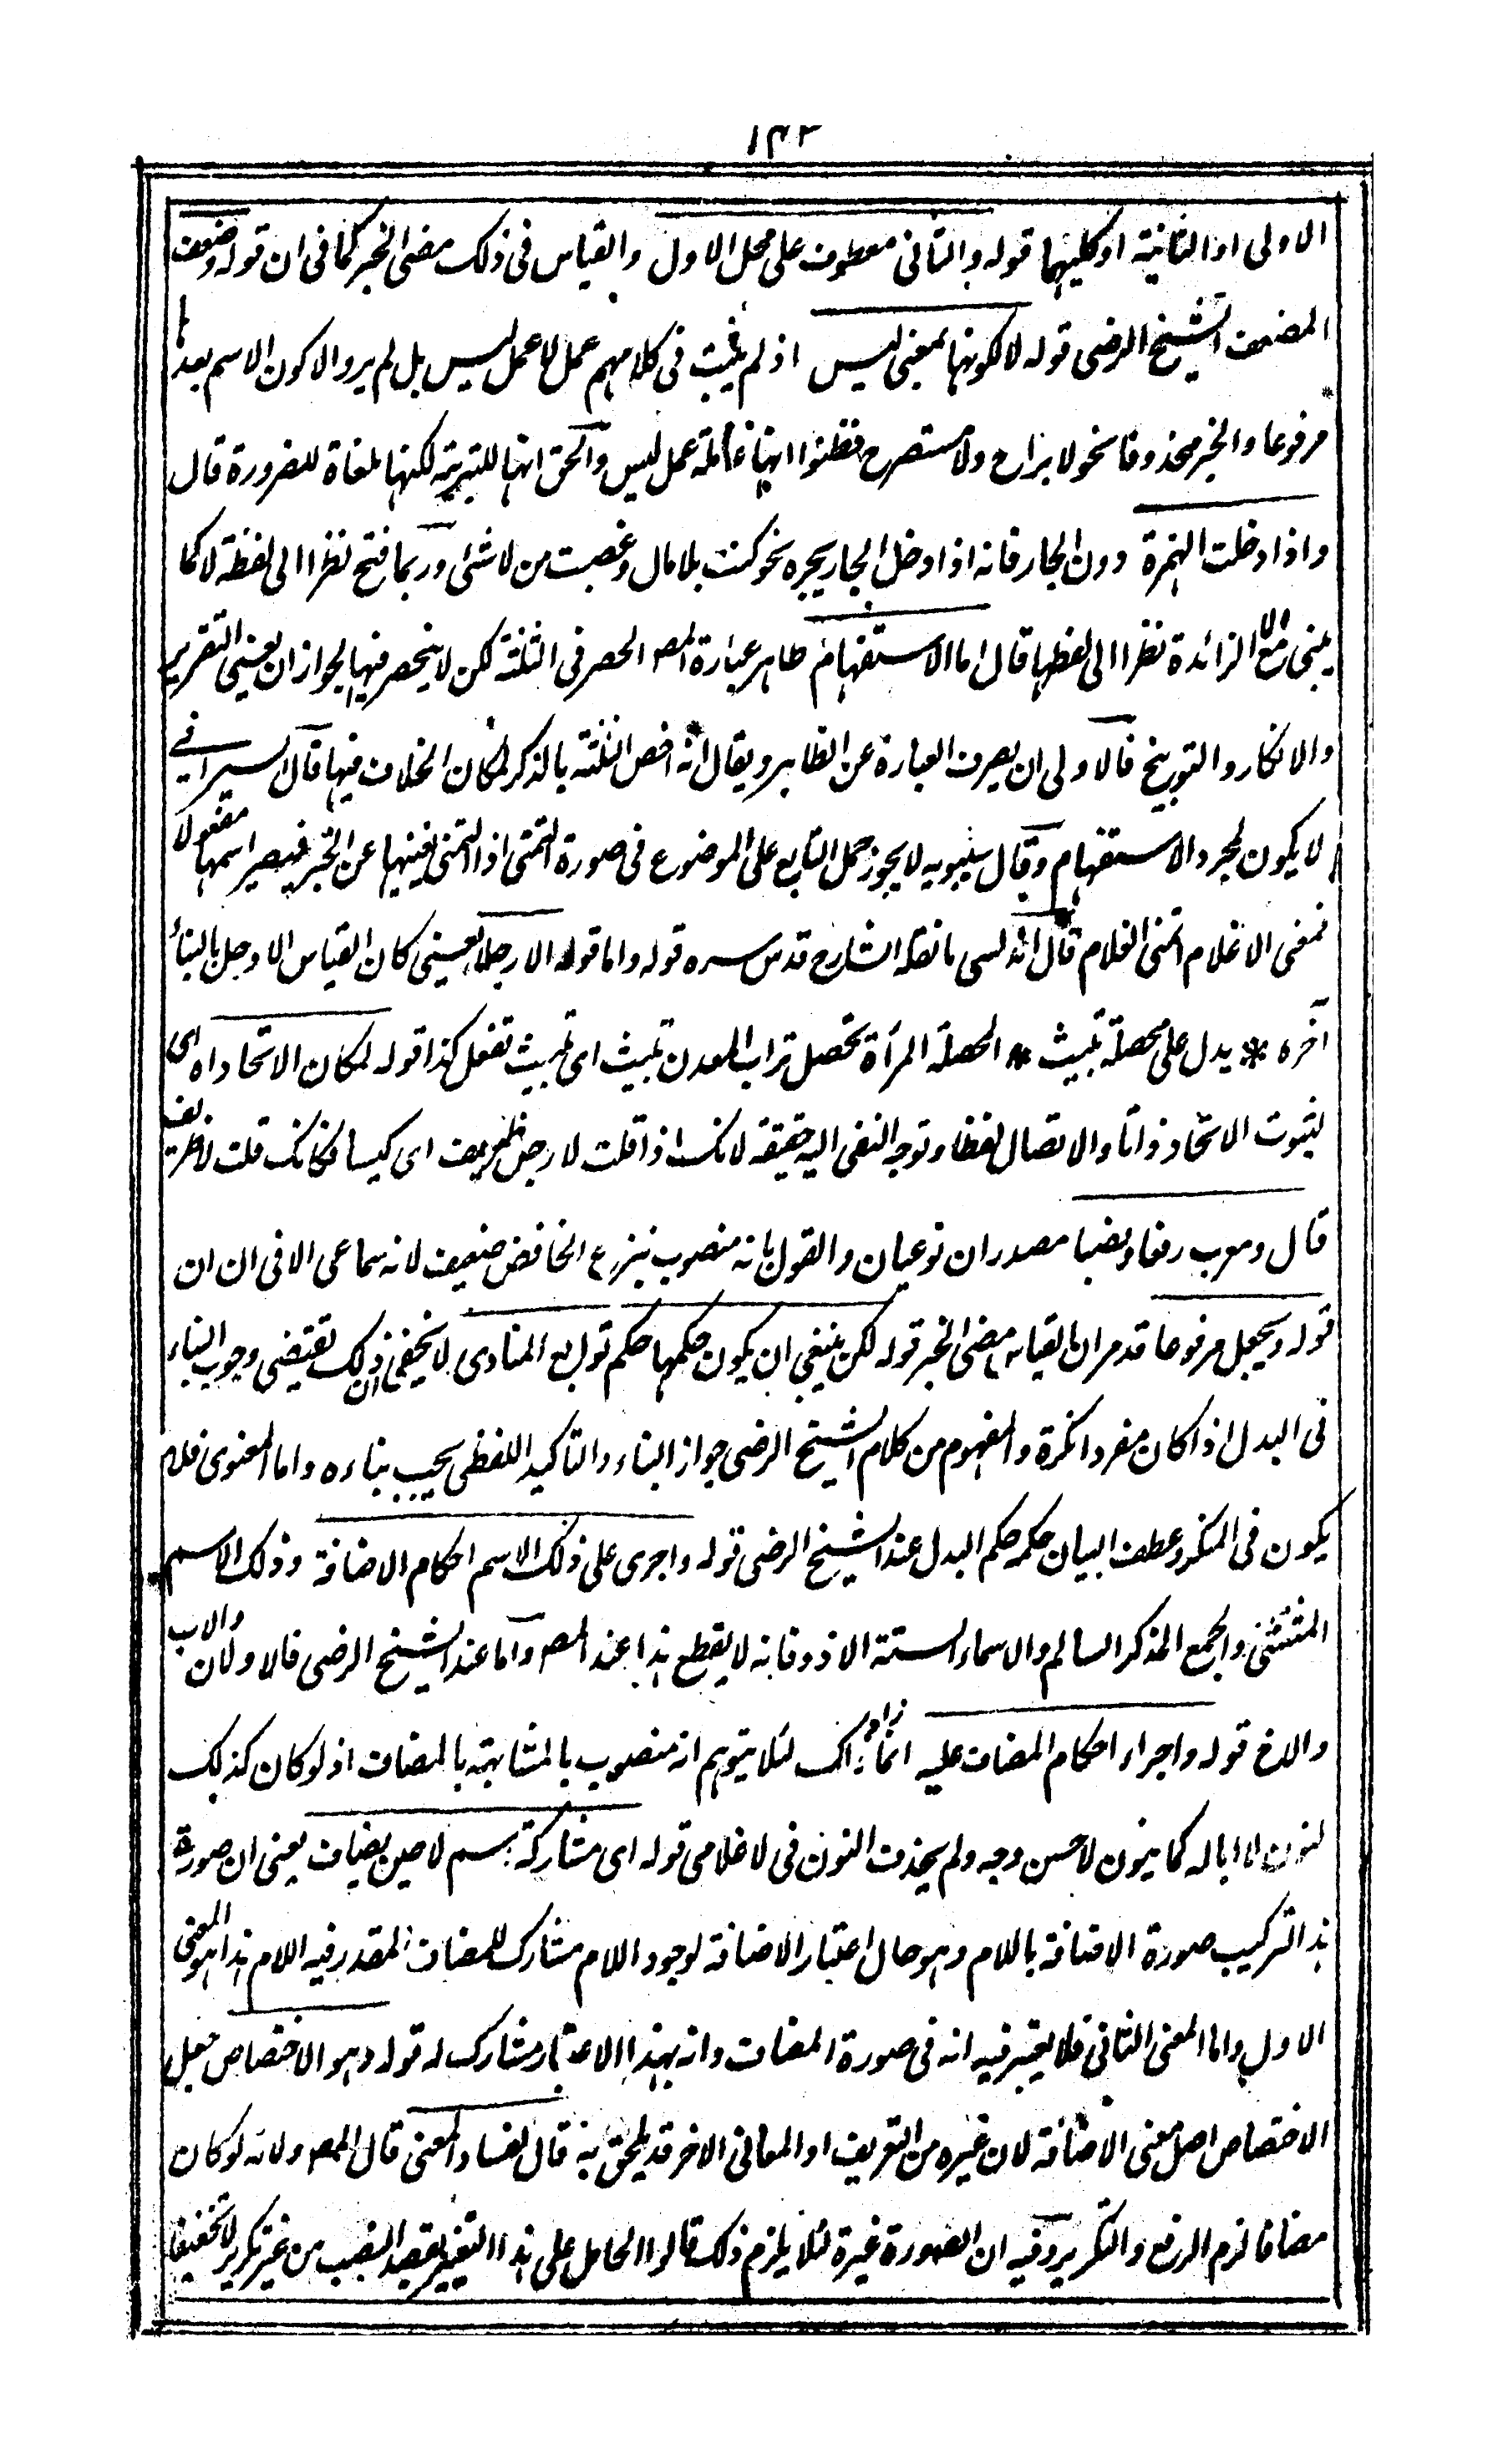 ١٤٢
الاولى او الثانية او كليهما قوله والثانى معطوف على محل الاول والقياس فى ذلك مضى الخبر كما فى ان قوله وضعف
المصنف الشيخ الرضى قوله لا لكونها بمعنى ليس اذ لم يثبت فى كلامهم عمل لا عمل ليس بل لم يرد الا كون الاسم بعدها
مرفوعا والخبر محذوفا نحو لا براح ولا مستصرخ فظنوا انها عاملة عمل ليس والحق انها للتبرية لكنها ملغاة للضرورة قال
واذا دخلت الهمزة دون الجار فانه اذا دخل الجار يجره نحو كنت بلا مال وغصبت من لا شئ وربما فتح نظرا الى لفظة لا كما
يبنى مع لا الزائدة نظرا الى لفظها قال اما الاستفهام ظاهر عبارة المص الحصر فى الثلثة لكن لا ينحصر فيها لجواز ان يعنى التقرير
والانكار والتوبيخ فالاولى ان يصرف العبارة عن الظاهر ويقال انه اخص الثلثة بالذكر لمكان الخلاف فيها قال السيرافى
لا يكون لمجرد الاستفهام وقال سيبويه لا يجوز حمل التابع على الموضوع فى صورة التمنى اذ التمنى يغنيها عن الخبر فيصير اسمها مفعولا
فمعنى الا غلام اتمنى الغلام قال اندلسى ما نقله الشارح قدس سره قوله واما قوله الا رجلا يعنى كان القياس الا رجل بالبناء
آخره * يدل على محصلة تبيت * المحصلة المرأة تحصل تراب المعدن تبيث اى تبيث تفعل كذا قوله لمكان الاتحاد اه اى
لثبوت الاتحاد ذاتا والاتصال لفظا وتوجه النفى اليه حقيقة لانك اذا قلت لا رجل ظريف اى كيسا فكانك قلت لا ظريف
قال ومعرب رفعا ونصبا مصدران نوعيان والقول بانه منصوب بنزع الخافض ضعيف لانه سماعى الا فى ان ان
قوله ويجعل مرفوعا قد مر ان القياس مضى الخبر قوله لكن ينبغى ان يكون حكمها حكم توابع المنادى لا يخفى ان ذلك تقتضى وجوب البناء
فى البدل اذا كان مفردا نكرة والمفهوم من كلام الشيخ الرضى جواز البناء والتاكيد اللفظى يجب بناءه واما المعنوى فلا
يكون فى المنكر وعطف البيان حكمه حكم البدل عند الشيخ الرضى قوله واجرى على ذلك الاسم احكام الاضافة وذلك الاسم
المثنى والجمع المذكر السالم والاسماء الستة الا ذو فانه لا يقطع هذا عند المص واما عند الشيخ الرضى فالاولان والاب
والاخ قوله واجراء احكام المضاف عليه انما زاد ذاك لئلا يتوهم انه منصوب بالمشابهة بالمضاف اذ لو كان كذلك
لنون لا ابا له كما ينون لا حسن وجه ولم يحذف النون فى لا غلامى قوله اى مشاركة اسم لا حين يضاف يعنى ان صورة
هذا التركيب صورة الاضافة باللام وهو حال اعتبار الاضافة لوجود اللام مشارك للمضاف المقدر فيه اللام هذا هو المعنى
الاول واما المعنى الثانى فلا يعتبر فيه انه فى صورة المضاف وانه بهذا الاعتبار مشارك له قوله وهو الاختصاص جعل
الاختصاص اصل معنى الاضافة لان غيره من التعريف او المعانى الاخر قد يلحق به قال لفساد المعنى قال المص ولانه لو كان
مضافا لزم الرفع والتكرير وفيه ان الصورة غيرة لئلا يلزم ذلك قالوا الحامل على هذا التغيير لقصد النصب من غير تكرير لا تخفيفا